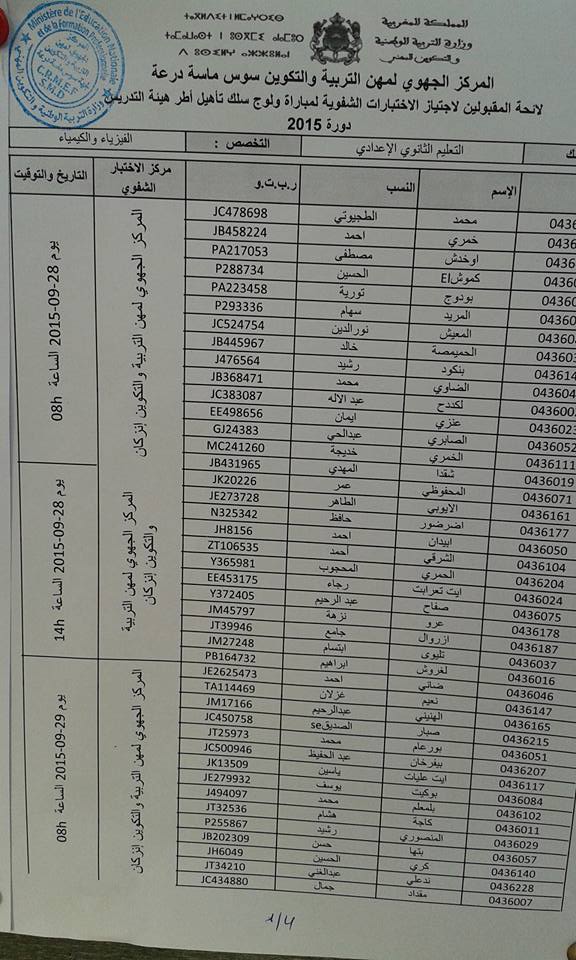 المملكة المغربية
وزارة التربية الوطنية
والتكوين المهني
ⵜⴰⴳⵍⴷⵉⵜ ⵏ ⵍⵎⵖⵔⵉⴱ
Ministère de l'Education Nationale
et de la Formation Professionnelle
C.R.M.E.F
S.M.D
المركز الجهوي لمهن التربية والتكوين سوس ماسة درعة
لائحة المقبولين لاجتياز الاختبارات الشفوية لمباراة ولوج سلك تأهيل أطر هيئة التدريس
دورة 2015
لك التعليم الثانوي الإعدادي التخصص : الفيزياء والكيمياء
الإسم النسب ر.ب.ت.و مركز الاختبار الشفوي التاريخ والتوقيت
0436 محمد الطجيوتي JC478698
0436 خمري احمد JB458224
0436 اوخدش مصطفى PA217053
0436 كموشEl الحسين P288734
0436 بودوج تورية PA223458
0436 المريد سهام P293336
04360 المعيش نورالدين JC524754
04360 الحميمصة خالد JB445967
043614 بنكود رشيد J476564
04360 الضاوي محمد JB368471
043600 لكددح عبد الاله JC383087
043602 عنزي ايمان EE498656
043605 الصابري عبدالحي GJ24383
0436111 الخمري خديجة MC241260
0436019 شقدا المهدي JB431965
0436071 المحفوظي عمر JK20226
0436161 الايوبي الطاهر JE273728
0436177 اضرضور حافظ N325342
0436050 ابيدان احمد JH8156
0436104 الشرقي أحمد ZT106535
0436204 الحمري المحجوب Y365981
0436024 ايت تعرابت رجاء EE453175
0436075 صفاح عبد الرحيم Y372405
0436178 عرو نزهة JM45797
0436187 ازروال جامع JT39946
0436037 تليوى ابتسام JM27248
0436016 لغروش ابراهيم PB164732
0436046 ضاني احمد JE2625473
0436147 نعيم غزلان TA114469
0436165 الهنيني عبدالرحيم JM17166
0436215 صبار الصديقse JC450758
0436051 بورعام محمد JT25973
0436207 بيفرخان عبد الحفيظ JC500946
0436117 ايت عليات ياسين JK13509
0436084 بوكيت يوسف JE279932
0436102 بلمعلم محمد J494097
0436011 كاجة هشام JT32536
0436029 المنصوري رشيد P255867
0436057 بتها حسن JB202309
0436140 كري الحسين JH6049
0436228 ندعلي عبدالغني JT34210
0436007 مقداد جمال JC434880
المركز الجهوي لمهن التربية والتكوين إنزكان
يوم 28-09-2015 الساعة 08h
المركز الجهوي لمهن التربية
والتكوين إنزكان
يوم 28-09-2015 الساعة 14h
المركز الجهوي لمهن التربية والتكوين إنزكان
يوم 29-09-2015 الساعة 08h
1/4